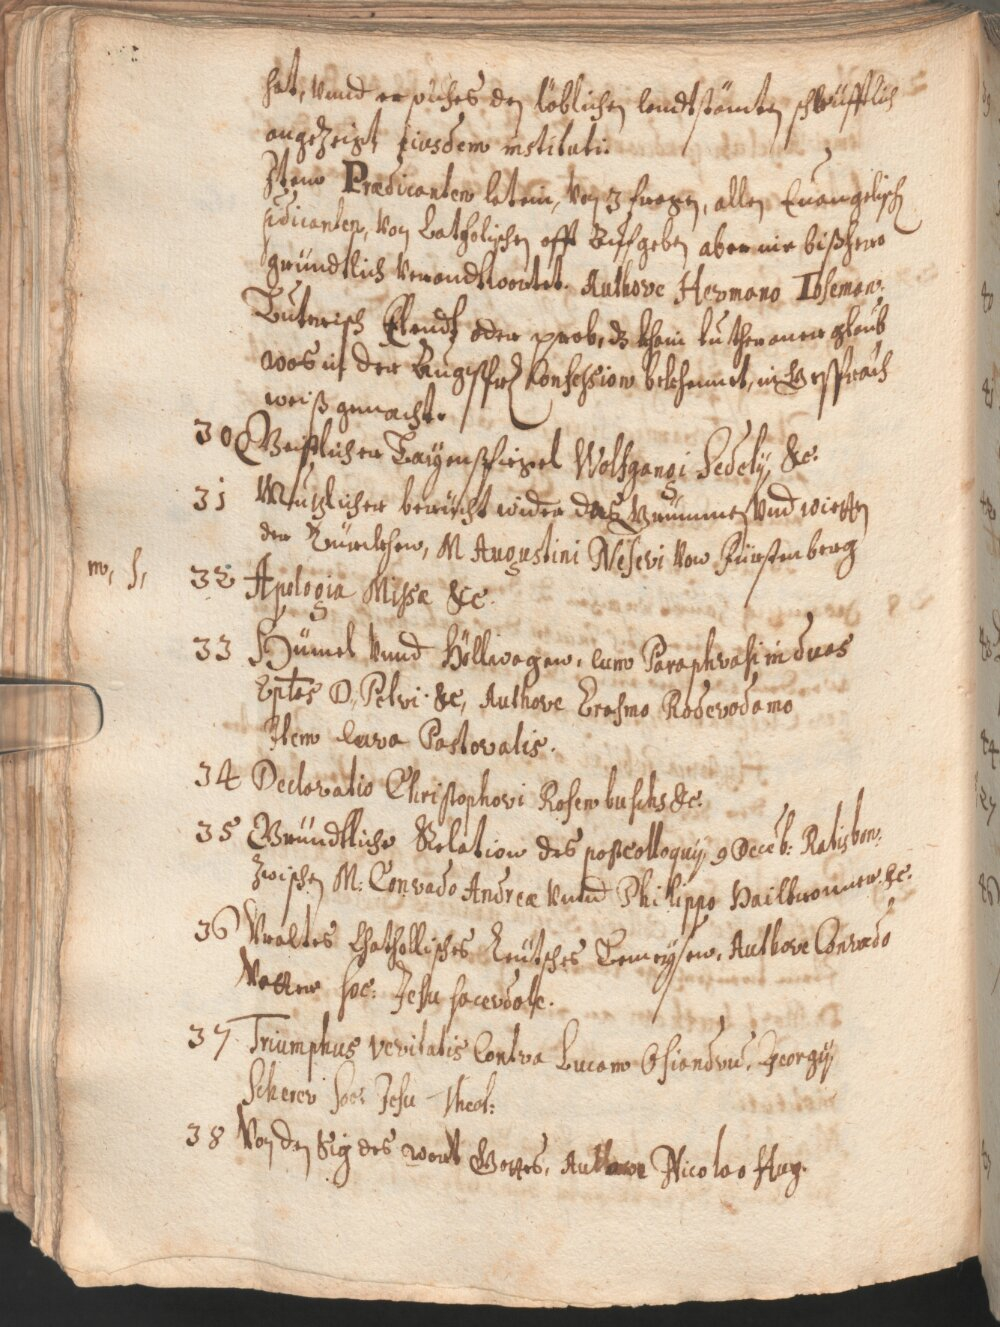 hat, vnnd er solches den löblichen landtstänten schrüfftlich
angezeigt eiusdem instituti.
Item Prædicanten latein, von 3 fragen, allen Euangelisch
predicanten, von Catholischen offt Auffgeben aber nie bißhero
gründtlich verandtwortet. Authore Hermano Ibseman.
Luterisch Elendt oder prob, dz khain lutheraner glaub
was in der Augspurg Confession bekhennet, in Gesprach
weiß gemacht.
30 Geistlicher Layenspiegel Wolfgangi Sedely &c.
31 Nutzlicher bericht wider das Grummen vnd wietten
der Zürckhen, M Augustini Neseri von Fürstenberg
m, f,
32 Apologia Missæ &c.
33 Himel vnnd Höllwagen, cum Paraphrasi in duas
Epłas D. Petri &c, Authore Erasmo Roderodamo
Item Cura Pastoralis.
34 Declaratio Christophori Rosenbuschs &c.
35 Gründtliche Relation des postcolloquij 9 Deceb: Ratisbon:
Zwischen M: Conrado Andreæ vnnd Philippo Hailbronner &c.
36 Vraltes Chathollisches teutsches Authore Conrado
Vetter Soc: Jesu sacerdote.
37 Triumphus veritatis Contra Lucam Osiandru. Georgij
Scherer Soc: Jesu Theol:
38 Von den Sig des wort Gottes, Authore Nicolao Hug.